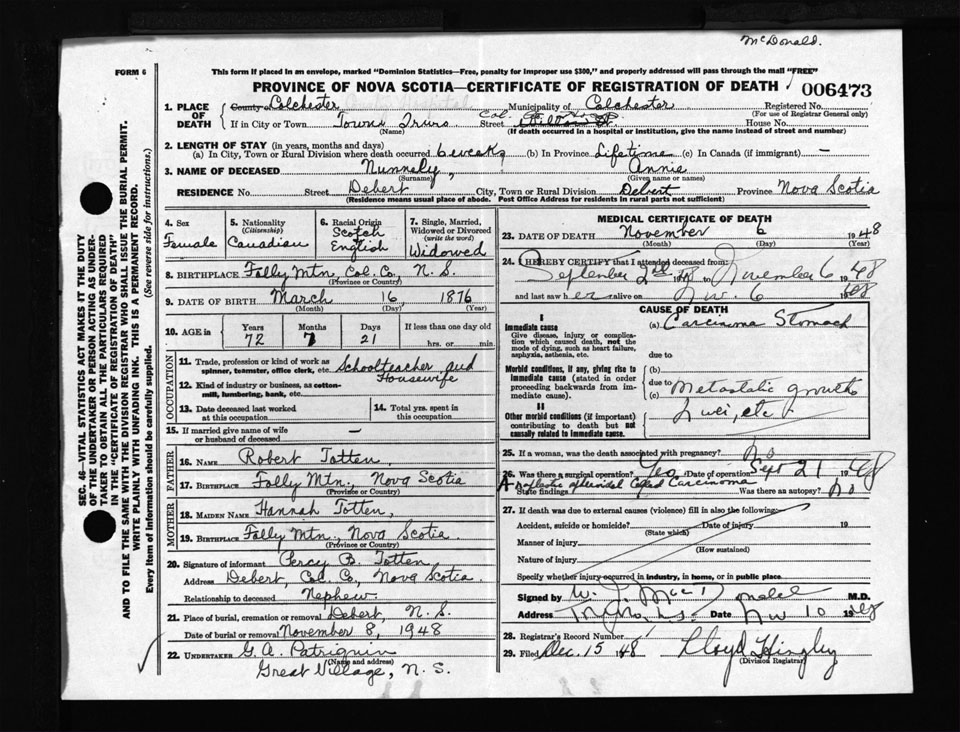 McDonald.
FORM 6
This form if placed in an envelope, marked "Dominion Statistics—Free, penalty for improper use $300," and properly addressed will pass through the mail "FREE"
PROVINCE OF NOVA SCOTIA—CERTIFICATE OF REGISTRATION OF DEATH
006473
1. PLACE OF DEATH
County of Colchester Municipality of Colchester Registered No.
(For use of Registrar General only)
If in City or Town Town Truro Street Col. House No.
(Name) (If death occurred in a hospital or institution, give the name instead of street and number)
2. LENGTH OF STAY (in years, months and days)
(a) In City, Town or Rural Division where death occurred 6 weeks (b) In Province Lifetime (c) In Canada (if immigrant) —
3. NAME OF DECEASED Nunnaly, Annie
(Surname) (Given name or names)
RESIDENCE No. Street Debert City, Town or Rural Division Debert Province Nova Scotia
(Residence means usual place of abode. Post Office Address for residents in rural parts not sufficient)
4. Sex
Female
5. Nationality
(Citizenship)
Canadian
6. Racial Origin
Scotch
English
7. Single, Married, Widowed or Divorced
(write the word)
Widowed
8. BIRTHPLACE Folly Mtn, Col. Co., N. S.
(Province or Country)
9. DATE OF BIRTH March 16, 1876
(Month) (Day) (Year)
10. AGE in Years Months Days If less than one day old
72 7 21 hrs. or min.
OCCUPATION
11. Trade, profession or kind of work as spinner, teamster, office clerk, etc. Schoolteacher and
Housewife
12. Kind of industry or business, as cotton-mill, lumbering, bank, etc.
13. Date deceased last worked at this occupation
14. Total yrs. spent in this occupation
15. If married give name of wife or husband of deceased —
FATHER
16. NAME Robert Totten
17. BIRTHPLACE Folly Mtn., Nova Scotia
(Province or Country)
MOTHER
18. MAIDEN NAME Hannah Totten,
19. BIRTHPLACE Folly Mtn., Nova Scotia.
(Province or Country)
20. Signature of informant Percy B. Totten
Address Debert, Col. Co, Nova Scotia.
Relationship to deceased Nephew.
21. Place of burial, cremation or removal Debert, N. S.
Date of burial or removal November 8, 1948
22. UNDERTAKER G. A. Patriquin
(Name and address)
Great Village, N. S.
MEDICAL CERTIFICATE OF DEATH
23. DATE OF DEATH November 6 1948
(Month) (Day) (Year)
24. I HEREBY CERTIFY that I attended deceased from:
September 2nd 1948 to November 6 1948
and last saw her alive on Nov. 6 1948
CAUSE OF DEATH
I
Immediate cause
Give disease, injury or complication which caused death, not the mode of dying, such as heart failure, asphyxia, asthenia, etc.
(a) Carcinoma Stomach
due to
Morbid conditions, if any, giving rise to immediate cause (stated in order proceeding backwards from immediate cause).
(b)
due to
(c) Metastatic growth
II
Other morbid conditions (if important) contributing to death but not causally related to immediate cause.
etc
25. If a woman, was the death associated with pregnancy? No
26. Was there a surgical operation? Yes Date of operation Sept 21 1948
State findings Carcinoma Was there an autopsy? No
27. If death was due to external causes (violence) fill in also the following:
Accident, suicide or homicide? Date of injury 19
(State which)
Manner of injury
(How sustained)
Nature of injury
Specify whether injury occurred in industry, in home, or in public place
Signed by W. J. McDonald M.D.
Address Truro, N.S. Date Nov 10 1948
28. Registrar's Record Number
29. Filed Dec. 15 1948 Lloyd Hingley
(Division Registrar)
SEC. 46—VITAL STATISTICS ACT MAKES IT THE DUTY
OF THE UNDERTAKER OR PERSON ACTING AS UNDER-
TAKER TO OBTAIN ALL THE PARTICULARS REQUIRED
IN THE "CERTIFICATE OF REGISTRATION OF DEATH"
AND TO FILE THE SAME WITH THE DIVISION REGISTRAR WHO SHALL ISSUE THE BURIAL PERMIT.
WRITE PLAINLY WITH UNFADING INK. THIS IS A PERMANENT RECORD.
Every item of information should be carefully supplied. (See reverse side for instructions.)